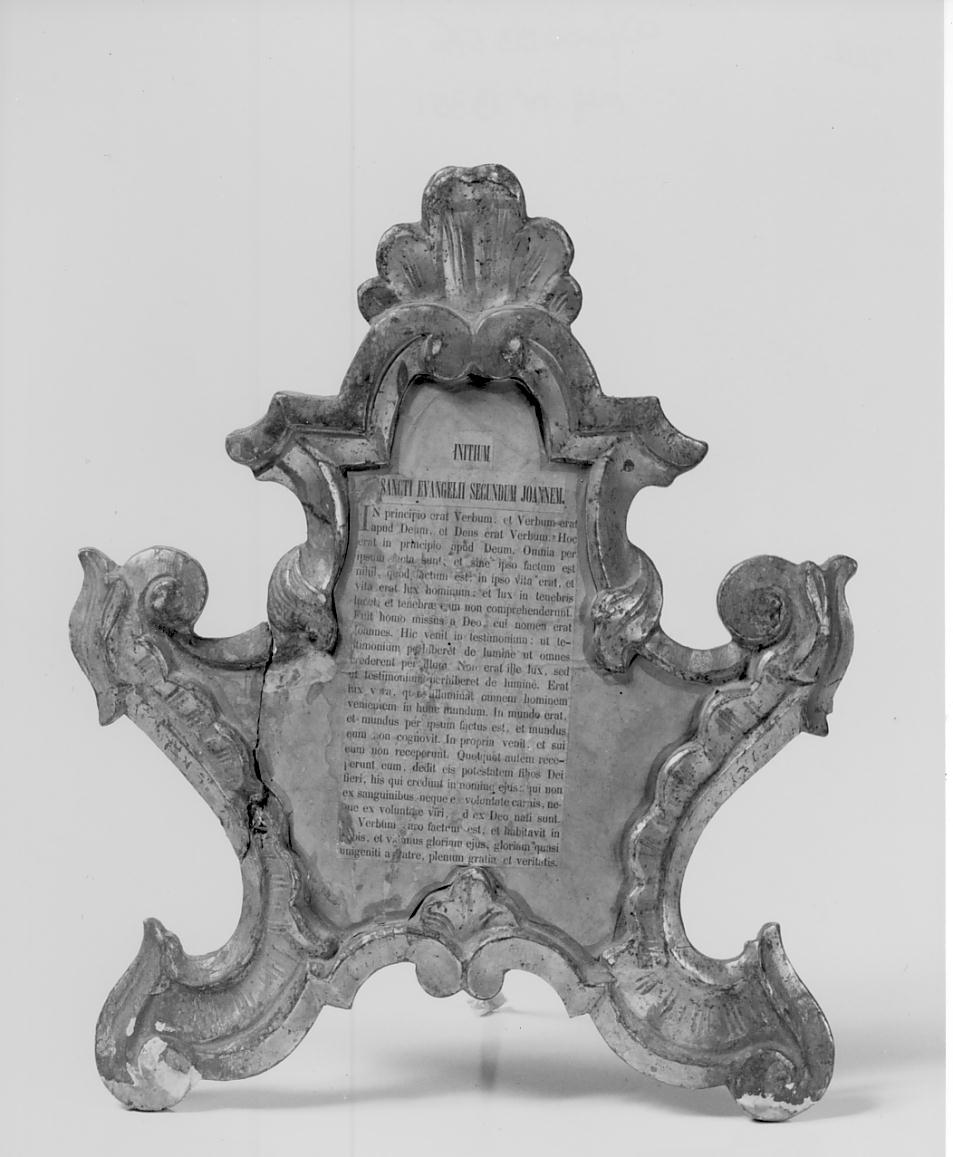 INITIUM
SANCTI EVANGELII SECUNDUM JOANNEM.
IN principio erat Verbum, et Verbum erat
apud Deum, et Deus erat Verbum. Hoc
erat in principio apud Deum. Omnia per
ipsum facta sunt; et sine ipso factum est
nihil, quod factum est; in ipso vita erat, et
vita erat lux hominum; et lux in tenebris
lucet, et tenebræ eam non comprehenderunt.
Fuit homo missus a Deo, cui nomen erat
Joannes. Hic venit in testimonium; ut te-
stimonium perhiberet de lumine ut omnes
crederent per illum. Non erat ille lux, sed
ut testimonium perhiberet de lumine. Erat
lux vera, quæ illuminat omnem hominem
venientem in hunc mundum. In mundo erat,
et mundus per ipsum factus est, et mundus
eum non cognovit. In propria venit, et sui
eum non receperunt. Quotquot autem rece-
perunt eum, dedit eis potestatem filios Dei
fieri, his qui credunt in nomine ejus: qui non
ex sanguinibus, neque ex voluntate carnis, ne-
que ex voluntate viri, ex Deo nati sunt.
Verbum caro factum est, et habitavit in
nobis, et vidimus gloriam ejus, gloriam quasi
unigeniti a Patre, plenum gratiæ et veritatis.